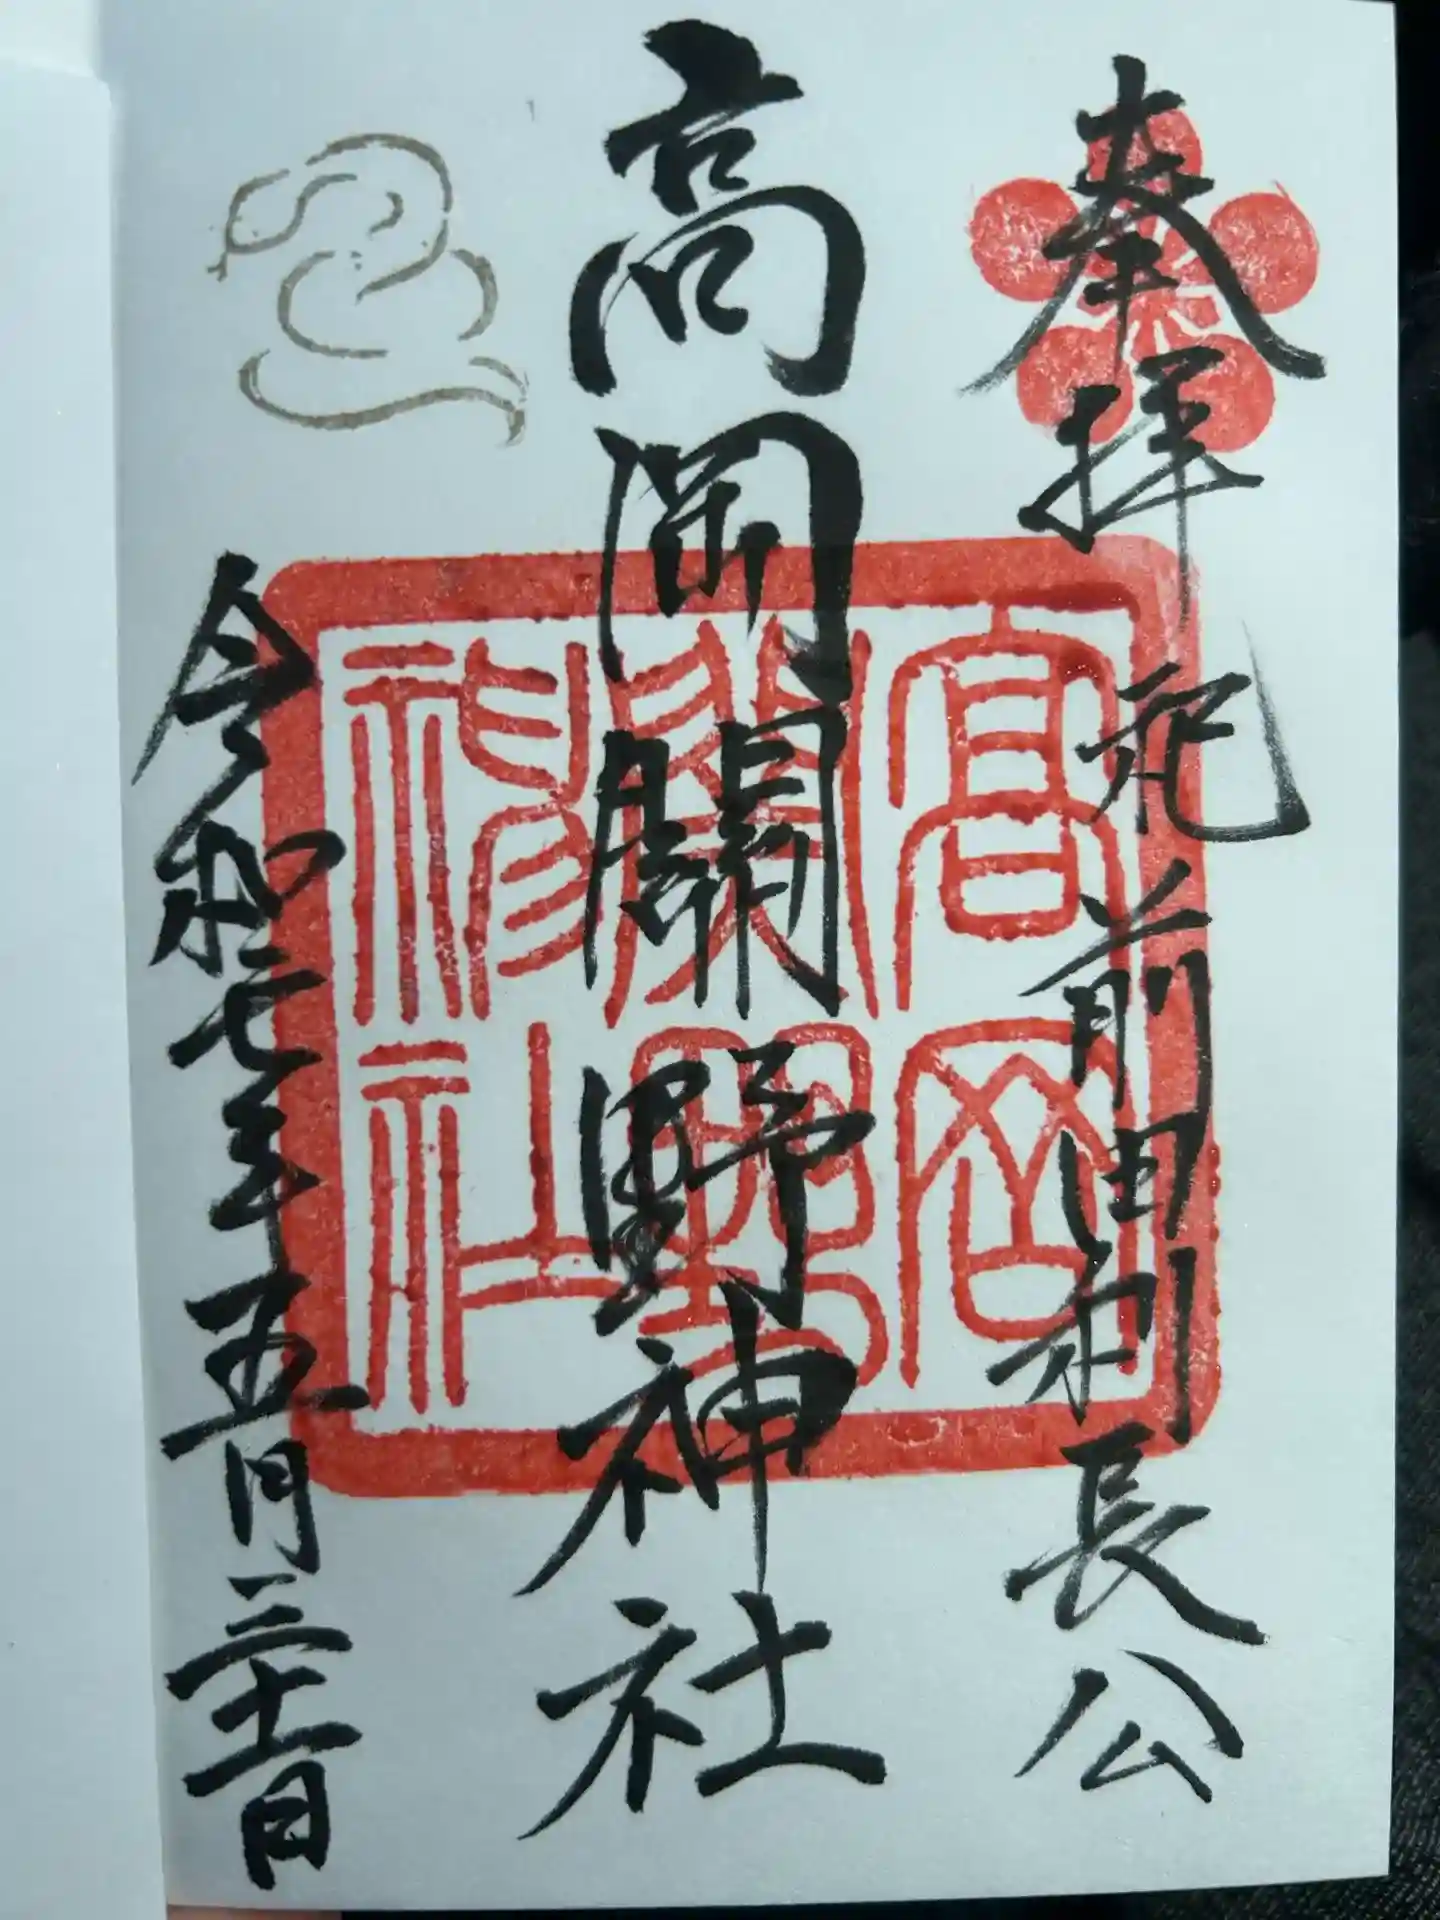 奉拝 祀前田利長公
高岡關野神社
令和七年五月三十一日
高岡
關野
神社